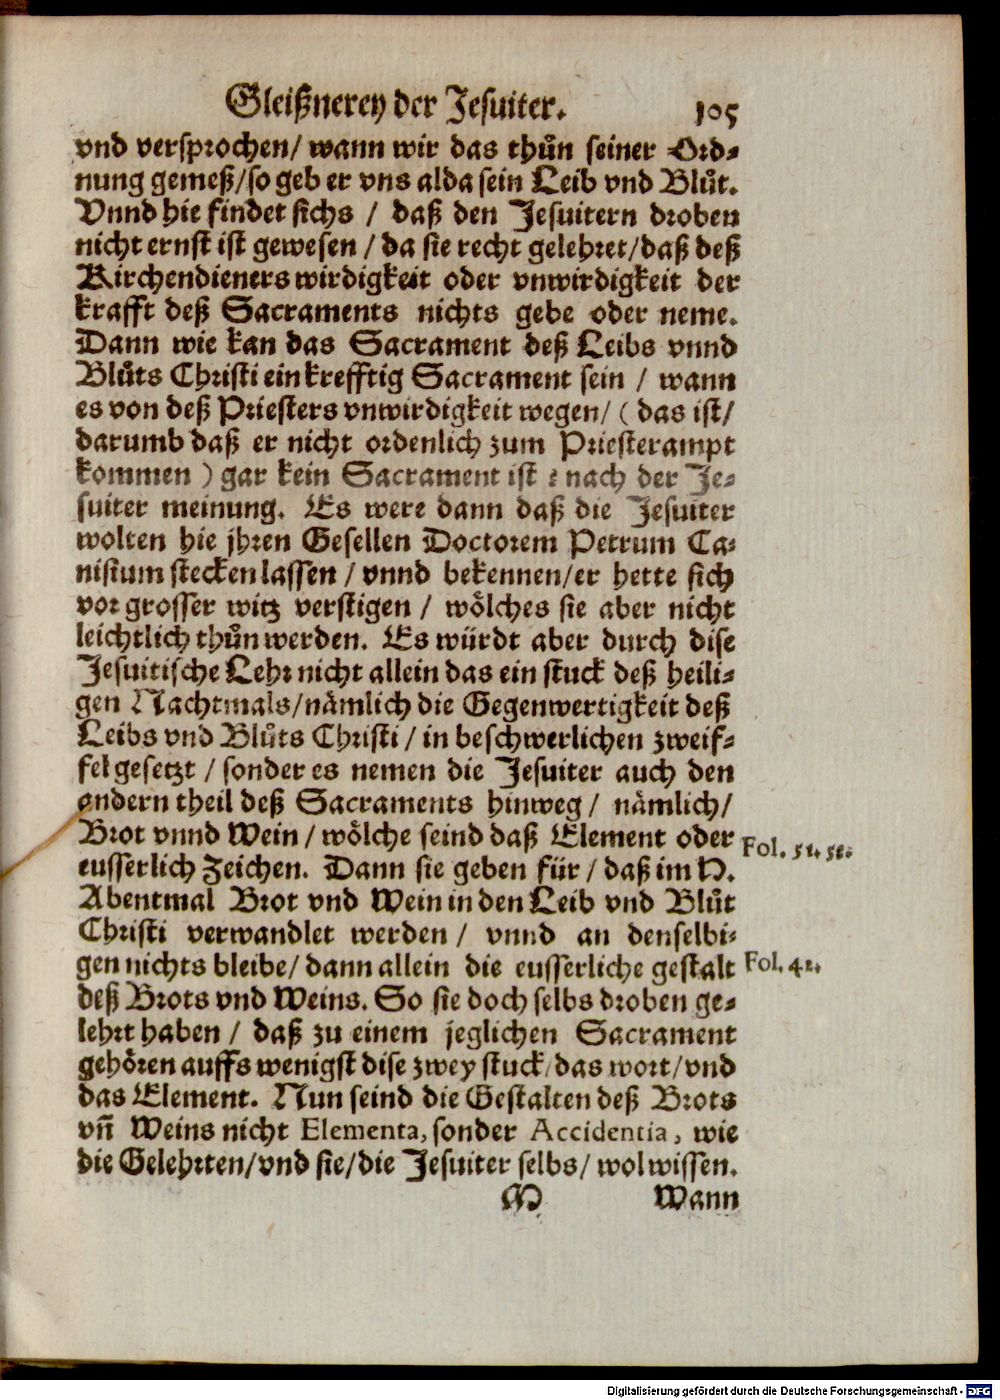 Gleißnerey der Jesuiter. 105
vnd versprochen/ wann wir das thuͦn seiner Ord⸗
nung gemeß/so geb er vns alda sein Leib vnd Bluͦt.
Vnnd hie findet sichs / daß den Jesuitern droben
nicht ernst ist gewesen / da sie recht gelehret/daß deß
Kirchendieners wirdigkeit oder vnwirdigkeit der
krafft deß Sacraments nichts gebe oder neme.
Dann wie kan das Sacrament deß Leibs vnnd
Bluͦts Christi ein krefftig Sacrament sein / wann
es von deß Priesters vnwirdigkeit wegen/ ( das ist/
darumb daß er nicht ordenlich zum Priesterampt
kommen ) gar kein Sacrament ist : nach der Je⸗
suiter meinung. Es were dann daß die Jesuiter
wolten hie jhren Gesellen Doctorem Petrum Ca⸗
nisium stecken lassen / vnnd bekennen/er hette sich
vor grosser witz verstigen / woͤlches sie aber nicht
leichtlich thuͦn werden. Es würdt aber durch dise
Jesuitische Lehr nicht allein das ein stuck deß heili⸗
gen Nachtmals/naͤmlich die Gegenwertigkeit deß
Leibs vnd Bluͦts Christi / in beschwerlichen zweif⸗
fel gesetzt / sonder es nemen die Jesuiter auch den
andern theil deß Sacraments hinweg / naͤmlich/
Brot vnnd Wein / woͤlche seind daß Element oder
eusserlich Zeichen. Dann sie geben für / daß im H.
Abentmal Brot vnd Wein in den Leib vnd Bluͦt
Christi verwandlet werden / vnnd an denselbi⸗
gen nichts bleibe/ dann allein die eusserliche gestalt
deß Brots vnd Weins. So sie doch selbs droben ge⸗
lehrt haben / daß zu einem jeglichen Sacrament
gehoͤren auffs wenigst dise zwey stuck/das wort/vnd
das Element. Nun seind die Gestalten deß Brots
vñ Weins nicht Elementa, sonder Accidentia, wie
die Gelehrten/vnd sie/die Jesuiter selbs/ wol wissen.
M Wann
Fol.
Fol. 42.
Digitalisierung gefördert durch die Deutsche Forschungsgemeinschaft - DFG